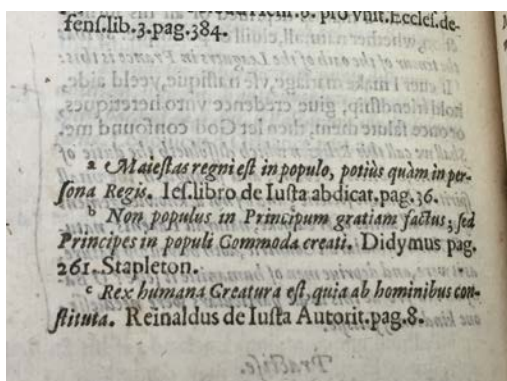 pro vnit.Eccles.de-
fens.lib.3.pag.384.
a Maiestas regni est in populo, potiùs quàm in per-
sona Regis. Ies.libro de Iusta abdicat.pag.36.
b Non populus in Principum gratiam factus, sed
Principes in populi Commoda creati. Didymus pag.
261. Stapleton.
c Rex humana Creatura est, quia ab hominibus con-
stituta. Reinaldus de Iusta Autorit.pag.8.